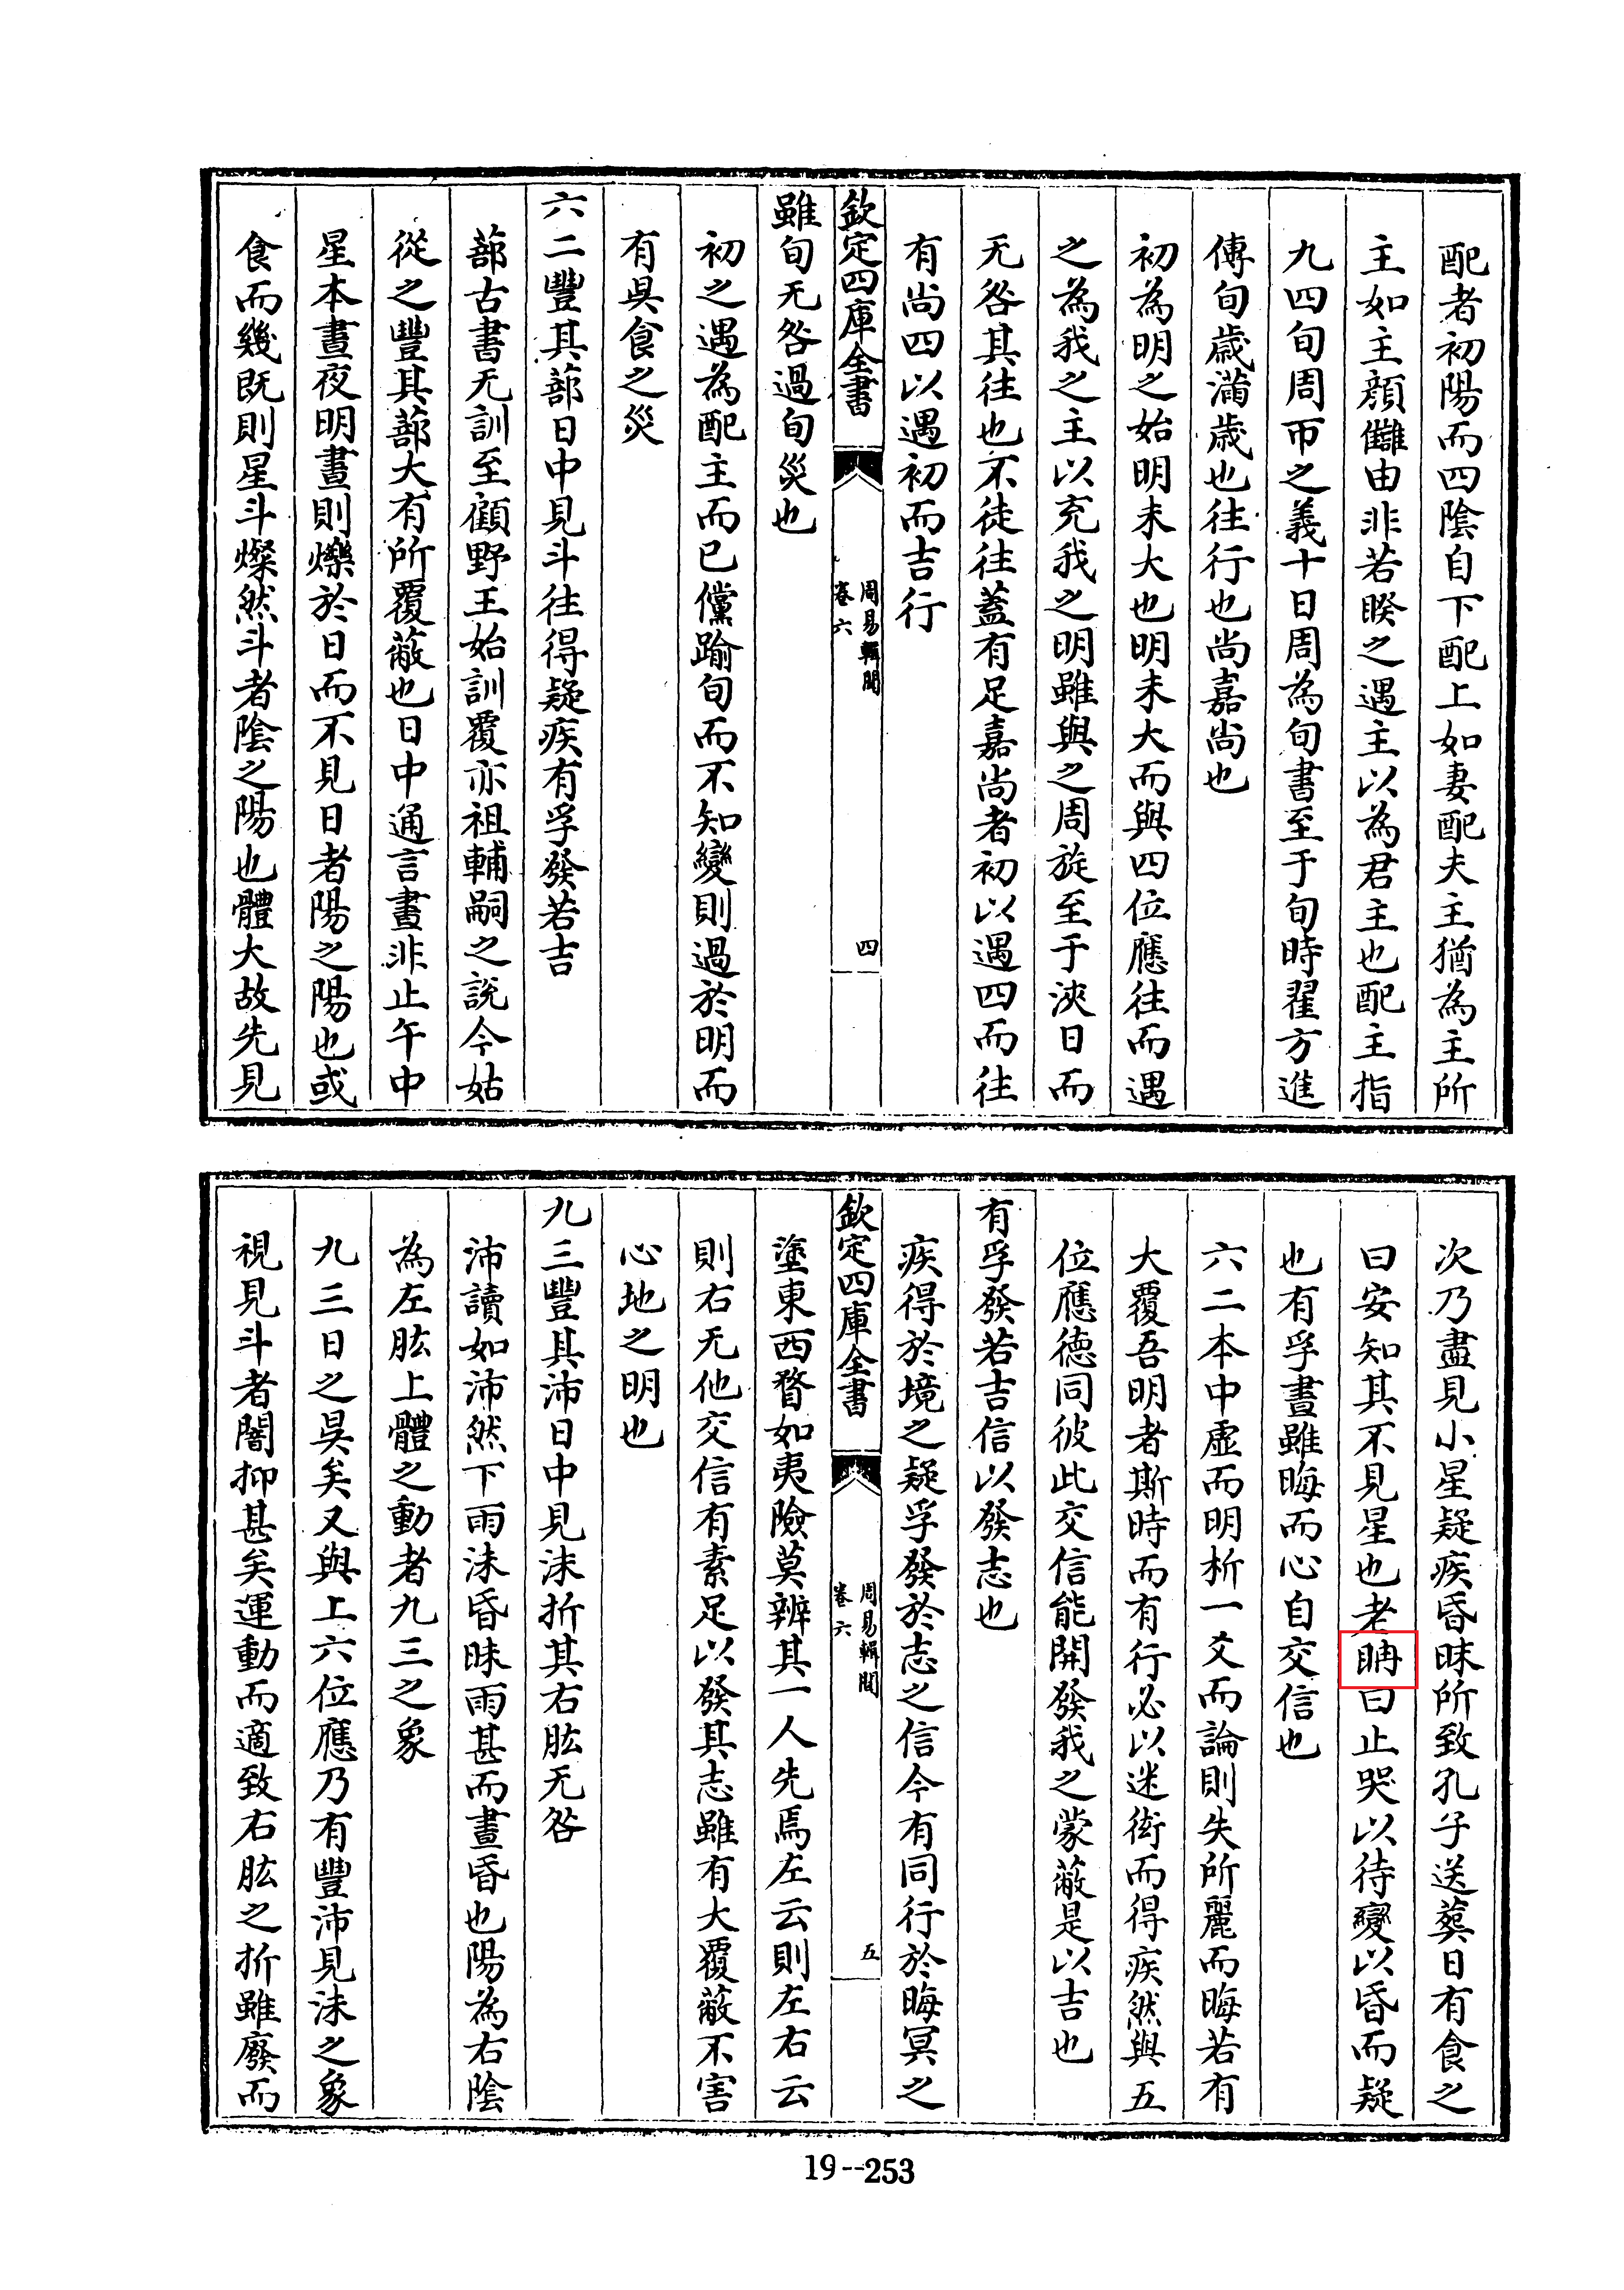 配者初陽而四陰自下配上如妻配夫主猶為主所
主如主顔讎由非若睽之遇主以為君主也配主指
九四旬周帀之義十日周為旬書至于旬時翟方進
傳旬歳滿歳也往行也尚嘉尚也
初為明之始明未大也明未大而與四位應往而遇
之為我之主以充我之明雖與之周旋至于浹日而
无咎其往也不徒往葢有足嘉尚者初以遇四而往
有尚四以遇初而吉行
欽定四庫全書
周易輯聞
卷六
四
雖旬无咎過旬災也
初之遇為配主而已儻踰旬而不知變則過於明而
有具食之災
六二豐其蔀日中見斗往得疑疾有孚發若吉
蔀古書无訓至顧野王始訓覆亦祖輔嗣之說今姑
從之豐其蔀大有所覆蔽也日中通言晝非止午中
星本晝夜明晝則爍於日而不見日者陽之陽也或
食而幾既則星斗燦然斗者陰之陽也體大故先見
次乃盡見小星疑疾昏昧所致孔子送葬日有食之
曰安知其不見星也老聃曰止哭以待變以昏而疑
也有孚晝雖晦而心自交信也
六二本中虛而明析一爻而論則失所麗而晦若有
大覆吾明者斯時而有行必以迷衒而得疾然與五
位應德同彼此交信能開發我之蒙蔽是以吉也
有孚發若吉信以發志也
疾得於境之疑孚發於志之信今有同行於晦冥之
欽定四庫全書
周易輯聞
卷六
五
塗東西瞀如夷險莫辨其一人先焉左云則左右云
則右无他交信有素足以發其志雖有大覆蔽不害
心地之明也
九三豐其沛日中見沬折其右肱无咎
沛讀如沛然下雨沬昏昧雨甚而晝昏也陽為右陰
為左肱上體之動者九三之象
九三日之昃矣又與上六位應乃有豐沛見沬之象
視見斗者闇抑甚矣運動而適致右肱之折雖廢而
19--253